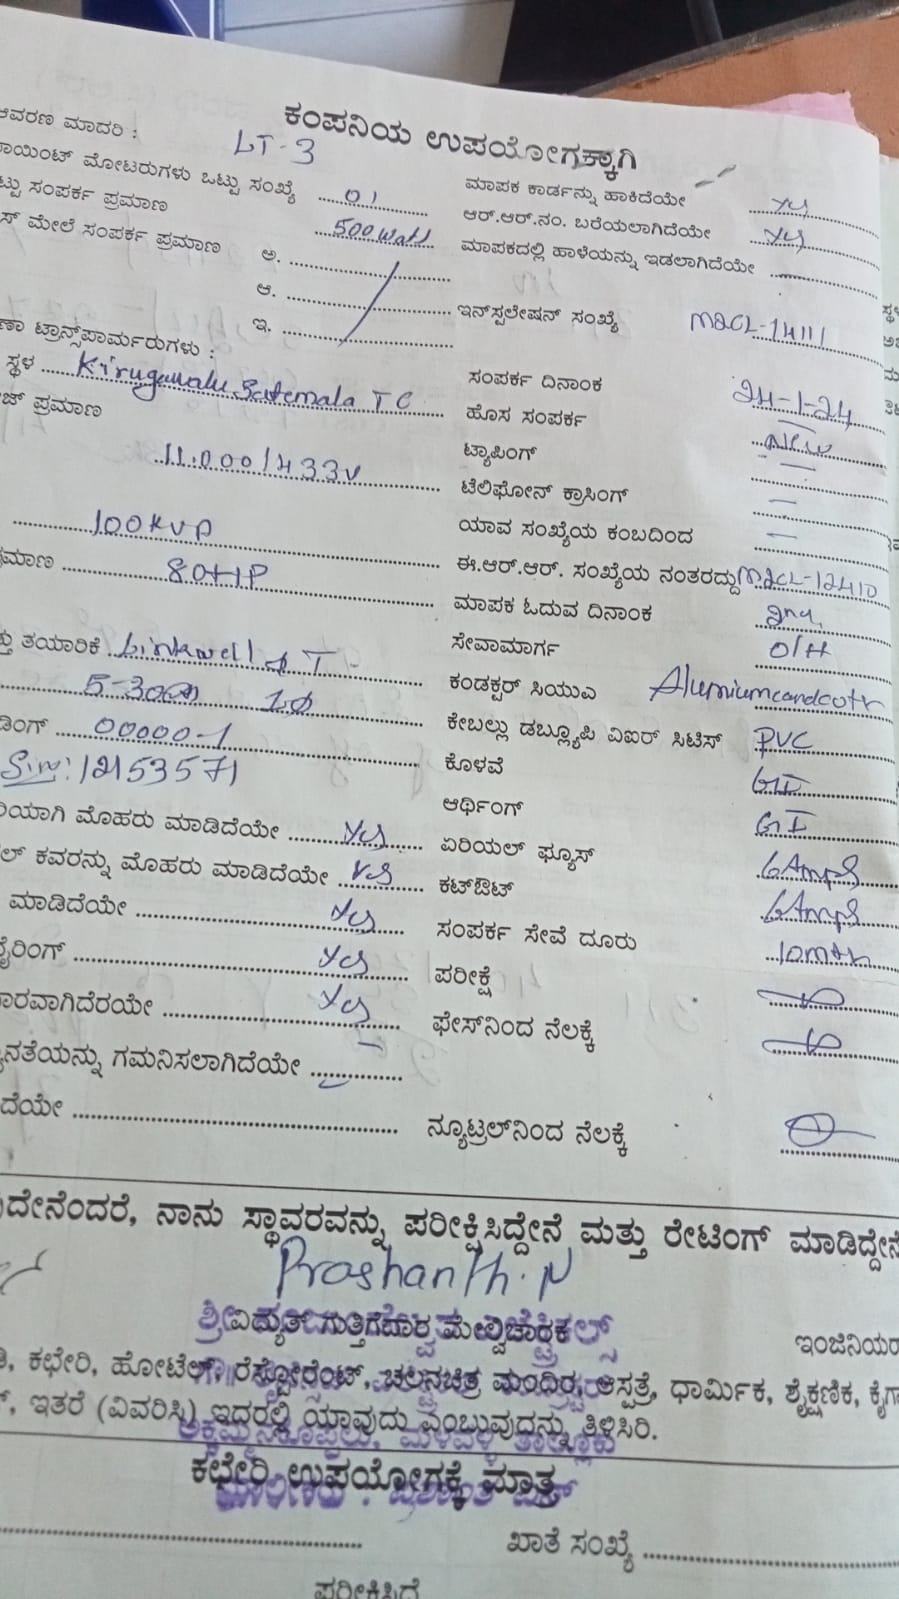 ಕಂಪನಿಯ ಉಪಯೋಗಕ್ಕಾಗಿ
ಆವರಣ ಮಾದರಿ : LT-3
ಾಯಿಂಟ್ ಮೋಟರುಗಳು ಒಟ್ಟು ಸಂಖ್ಯೆ 01 ಮಾಪಕ ಕಾರ್ಡನ್ನು ಹಾಕಿದೆಯೇ yes
ಟ್ಟು ಸಂಪರ್ಕ ಪ್ರಮಾಣ 500 watt ಆರ್.ಆರ್.ನಂ. ಬರೆಯಲಾಗಿದೆಯೇ yes
ಸ್ ಮೇಲೆ ಸಂಪರ್ಕ ಪ್ರಮಾಣ ಅ. ಮಾಪಕದಲ್ಲಿ ಹಾಳೆಯನ್ನು ಇಡಲಾಗಿದೆಯೇ
ಆ. ಇನ್‌ಸ್ಪಲೇಷನ್ ಸಂಖ್ಯೆ
ಇ.
ಣಾ ಟ್ರಾನ್ಸ್‌ಪಾರ್ಮರುಗಳು :
ಸ್ಥಳ TC ಸಂಪರ್ಕ ದಿನಾಂಕ 24-1-24
ಜ್ ಪ್ರಮಾಣ ಹೊಸ ಸಂಪರ್ಕ New
11.000/433V ಟ್ಯಾಪಿಂಗ್ —
ಟೆಲಿಫೋನ್ ಕ್ರಾಸಿಂಗ್ —
100KVA ಯಾವ ಸಂಖ್ಯೆಯ ಕಂಬದಿಂದ —
ಪ್ರಮಾಣ 80HP ಈ.ಆರ್.ಆರ್. ಸಂಖ್ಯೆಯ ನಂತರದ್ದು
ಮಾಪಕ ಓದುವ ದಿನಾಂಕ
ತ್ತು ತಯಾರಿಕೆ Linkwell ಸೇವಾಮಾರ್ಗ O/H
5-30 1Ø ಕಂಡಕ್ಟರ್ ಸಿಯುಎ Alumiumcondcotr
ಡಿಂಗ್ 00000-1 ಕೇಬಲ್ಲು ಡಬ್ಲ್ಯೂಪಿ ವಿಐರ್ ಸಿಟಿಸ್ PVC
12153571 ಕೊಳವೆ GI
ಆರ್ಥಿಂಗ್ GI
ರಿಯಾಗಿ ಮೊಹರು ಮಾಡಿದೆಯೇ yes ಏರಿಯಲ್ ಫ್ಯೂಸ್ 6Amps
ಲ್ ಕವರನ್ನು ಮೊಹರು ಮಾಡಿದೆಯೇ yes ಕಟ್‌ಔಟ್ 6Amps
ಮಾಡಿದೆಯೇ yes ಸಂಪರ್ಕ ಸೇವೆ ದೂರು
ೈರಿಂಗ್ yes ಪರೀಕ್ಷೆ
ಾರವಾಗಿದೆರಯೇ yes ಫೇಸ್‌ನಿಂದ ನೆಲಕ್ಕೆ
ನತೆಯನ್ನು ಗಮನಿಸಲಾಗಿದೆಯೇ
ದೆಯೇ ನ್ಯೂಟ್ರಲ್‌ನಿಂದ ನೆಲಕ್ಕೆ
ದೇನೆಂದರೆ, ನಾನು ಸ್ಥಾವರವನ್ನು ಪರೀಕ್ಷಿಸಿದ್ದೇನೆ ಮತ್ತು ರೇಟಿಂಗ್ ಮಾಡಿದ್ದೇನೆ
Prashanth.N
ವಿದ್ಯುತ್ ಗುತ್ತಿಗೆದಾರ ಮೇಲ್ವಿಚಾರಕ ಇಂಜಿನಿಯರ
ಕಛೇರಿ, ಹೋಟೆಲ್, ರೆಸ್ಟೋರೆಂಟ್, ಚಲನಚಿತ್ರ ಮಂದಿರ, ಆಸ್ಪತ್ರೆ, ಧಾರ್ಮಿಕ, ಶೈಕ್ಷಣಿಕ, ಕೈಗಾ
ಇತರೆ (ವಿವರಿಸಿ) ಇದರಲ್ಲಿ ಯಾವುದು ಎಂಬುವುದನ್ನು ತಿಳಿಸಿರಿ.
ಕಛೇರಿ ಉಪಯೋಗಕ್ಕೆ ಮಾತ್ರ
ಖಾತೆ ಸಂಖ್ಯೆ
ಪರೀಕ್ಷಿಸಿದೆ